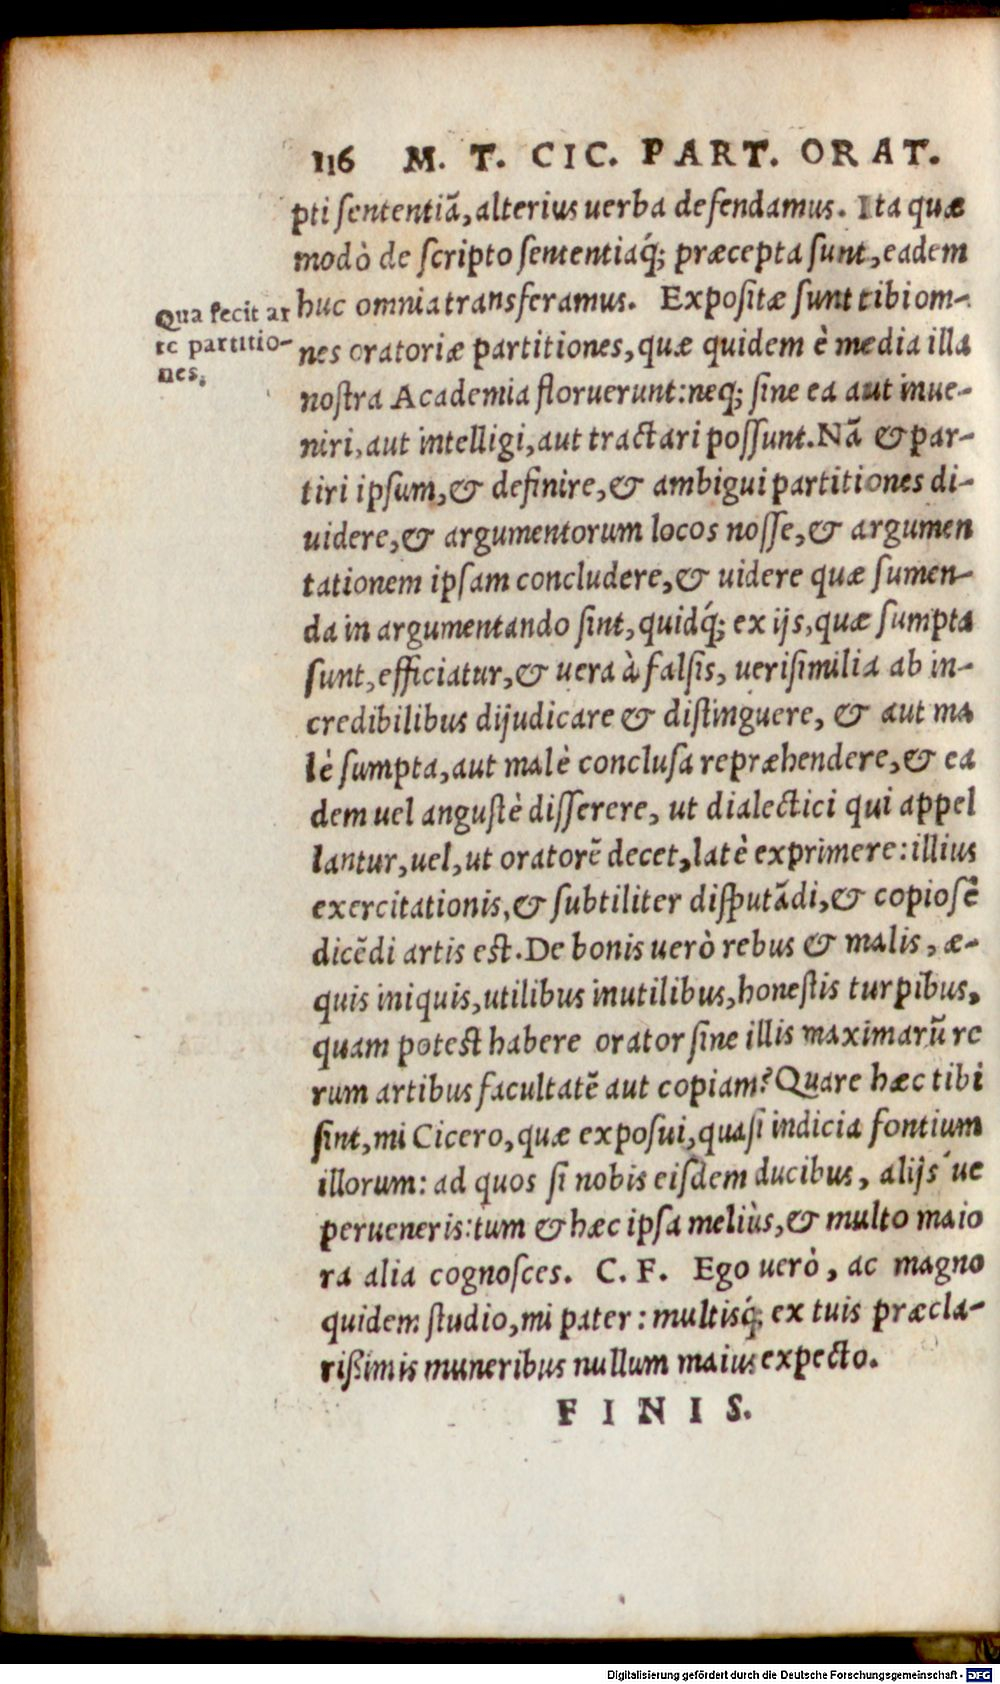 116 M. T. CIC. PART. ORAT.
pti sententiã, alterius uerba defendamus. Ita quæ
modò de scripto sententiaq́; præcepta sunt, eadem
huc omnia transferamus. Expositæ sunt tibi om-
nes oratoriæ partitiones, quæ quidem è media illa
nostra Academia floruerunt: neq; sine ea aut inue-
niri, aut intelligi, aut tractari possunt. Nã & par-
tiri ipsum, & definire, & ambigui partitiones di-
uidere, & argumentorum locos nosse, & argumen
tationem ipsam concludere, & uidere quæ sumen-
da in argumentando sint, quidq́; ex ijs, quæ sumpta
sunt, efficiatur, & uera à falsis, uerisimilia ab in-
credibilibus dijudicare & distinguere, & aut ma
lè sumpta, aut malè conclusa repræhendere, & ea
dem uel angustè disserere, ut dialectici qui appel
lantur, uel, ut oratorẽ decet, latè exprimere: illius
exercitationis, & subtiliter disputãdi, & copiosẽ
dicẽdi artis est. De bonis uerò rebus & malis, æ-
quis iniquis, utilibus inutilibus, honestis turpibus,
quam potest habere orator sine illis maximarũ re
rum artibus facultatẽ aut copiam? Quare hæc tibi
sint, mi Cicero, quæ exposui, quasi indicia fontium
illorum: ad quos si nobis eisdem ducibus, alijs ue
perueneris: tum & hæc ipsa meliùs, & multo maio
ra alia cognosces. C. F. Ego uerò, ac magno
quidem studio, mi pater: multisq́; ex tuis præcla-
rißimis muneribus nullum maius expecto.
FINIS.
Qua fecit ar
te partitio-
nes.
Digitalisierung gefördert durch die Deutsche Forschungsgemeinschaft - DFG